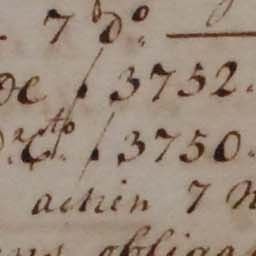 7 do
de f 3752.
Cto f 3750.
actien 7 N
obliga